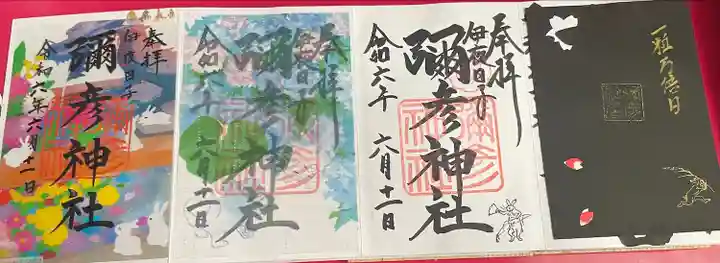 奉拝
伊夜日子
彌彦神社
令和六年六月十一日
奉拝
伊夜日子
彌彦神社
令和六年
六月十一日
奉拝
伊夜日子
彌彦神社
令和六年
六月十一日
一粒万倍日